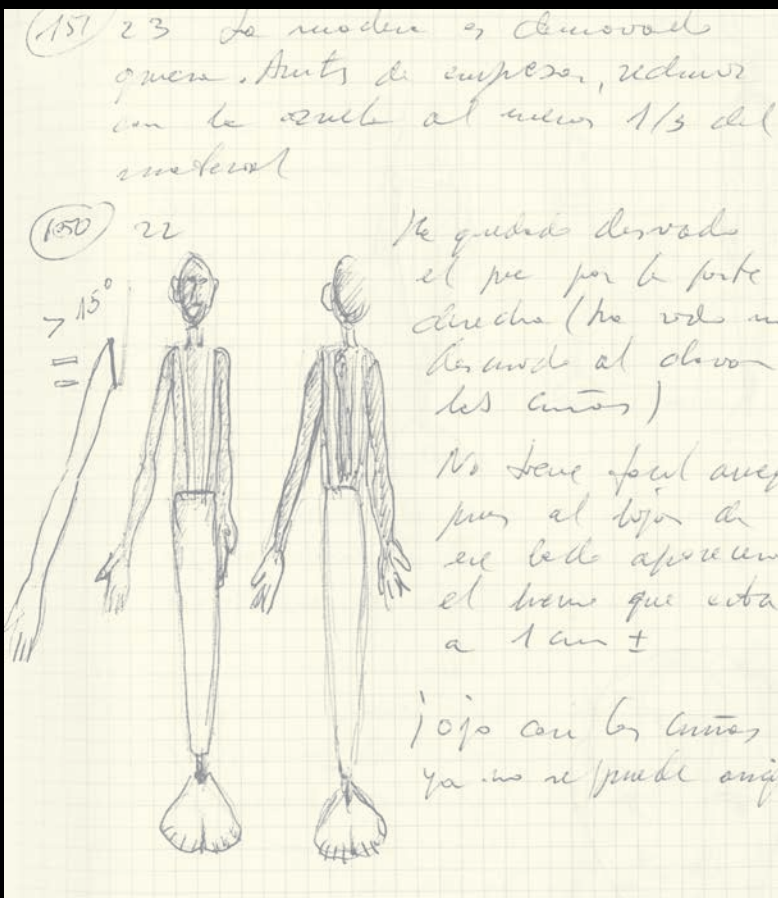 (151) 23 La madera es demasiado
gruesa. Antes de empezar, reducir
con la azuela al menos 1/3 del
material
(150) 22
> 15°
Ha quedado desviado
el pie por la parte
derecha (ha sido un
al clavar
las cuñas)
No tiene fácil
pues al bajar de
ese lado
el hierro que esta
a 1 cm ±
¡ojo con las cuñas
ya no se puede